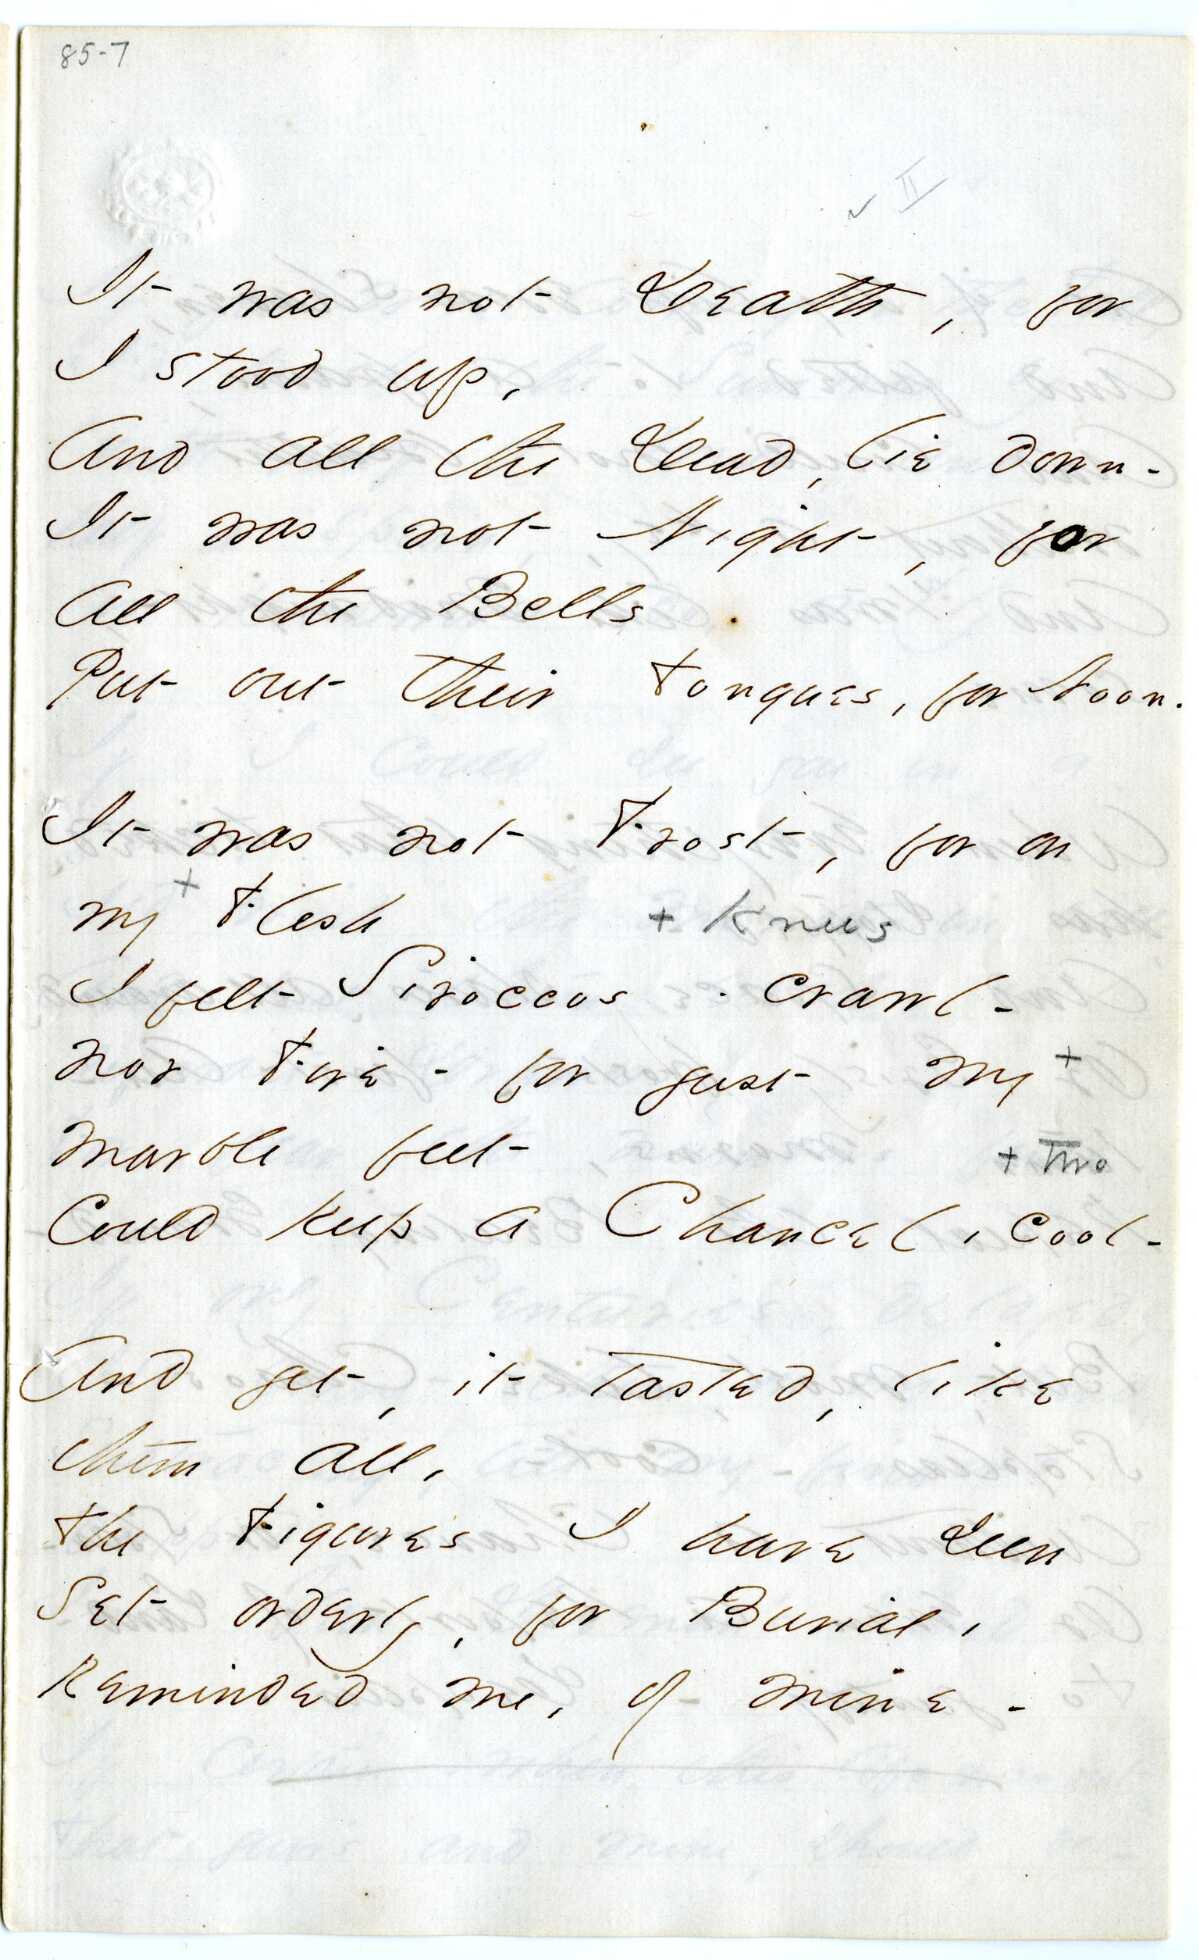 85-7
✓ II
It was not Death, for
I stood up,
And all the Dead, lie down -
It was not Night, for
all the Bells
Put out their Tongues, for Noon.
It was not Frost, for on
my + Flesh + Knees
I felt Siroccos - crawl -
nor Fire - for just my +
marble feet + Two
Could keep a Chancel, cool -
And yet, it tasted, like
them all,
the Figures I have seen
Set orderly, for Burial,
Reminded me, of mine -